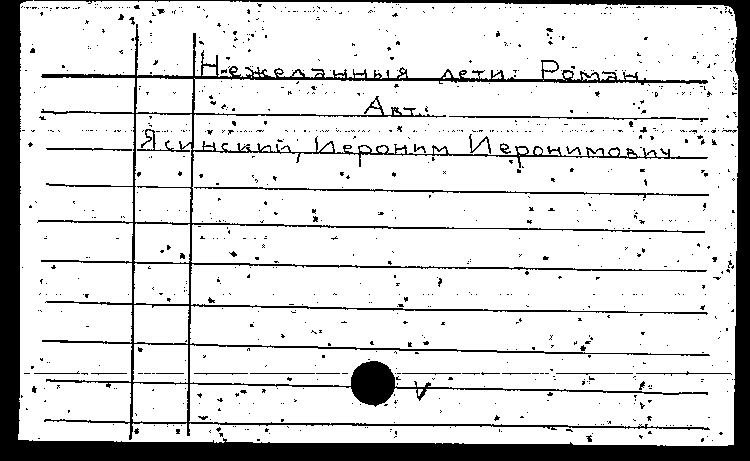 Нежеланныя дети. Роман.
Авт.:
Ясинский, Иероним Иеронимович.